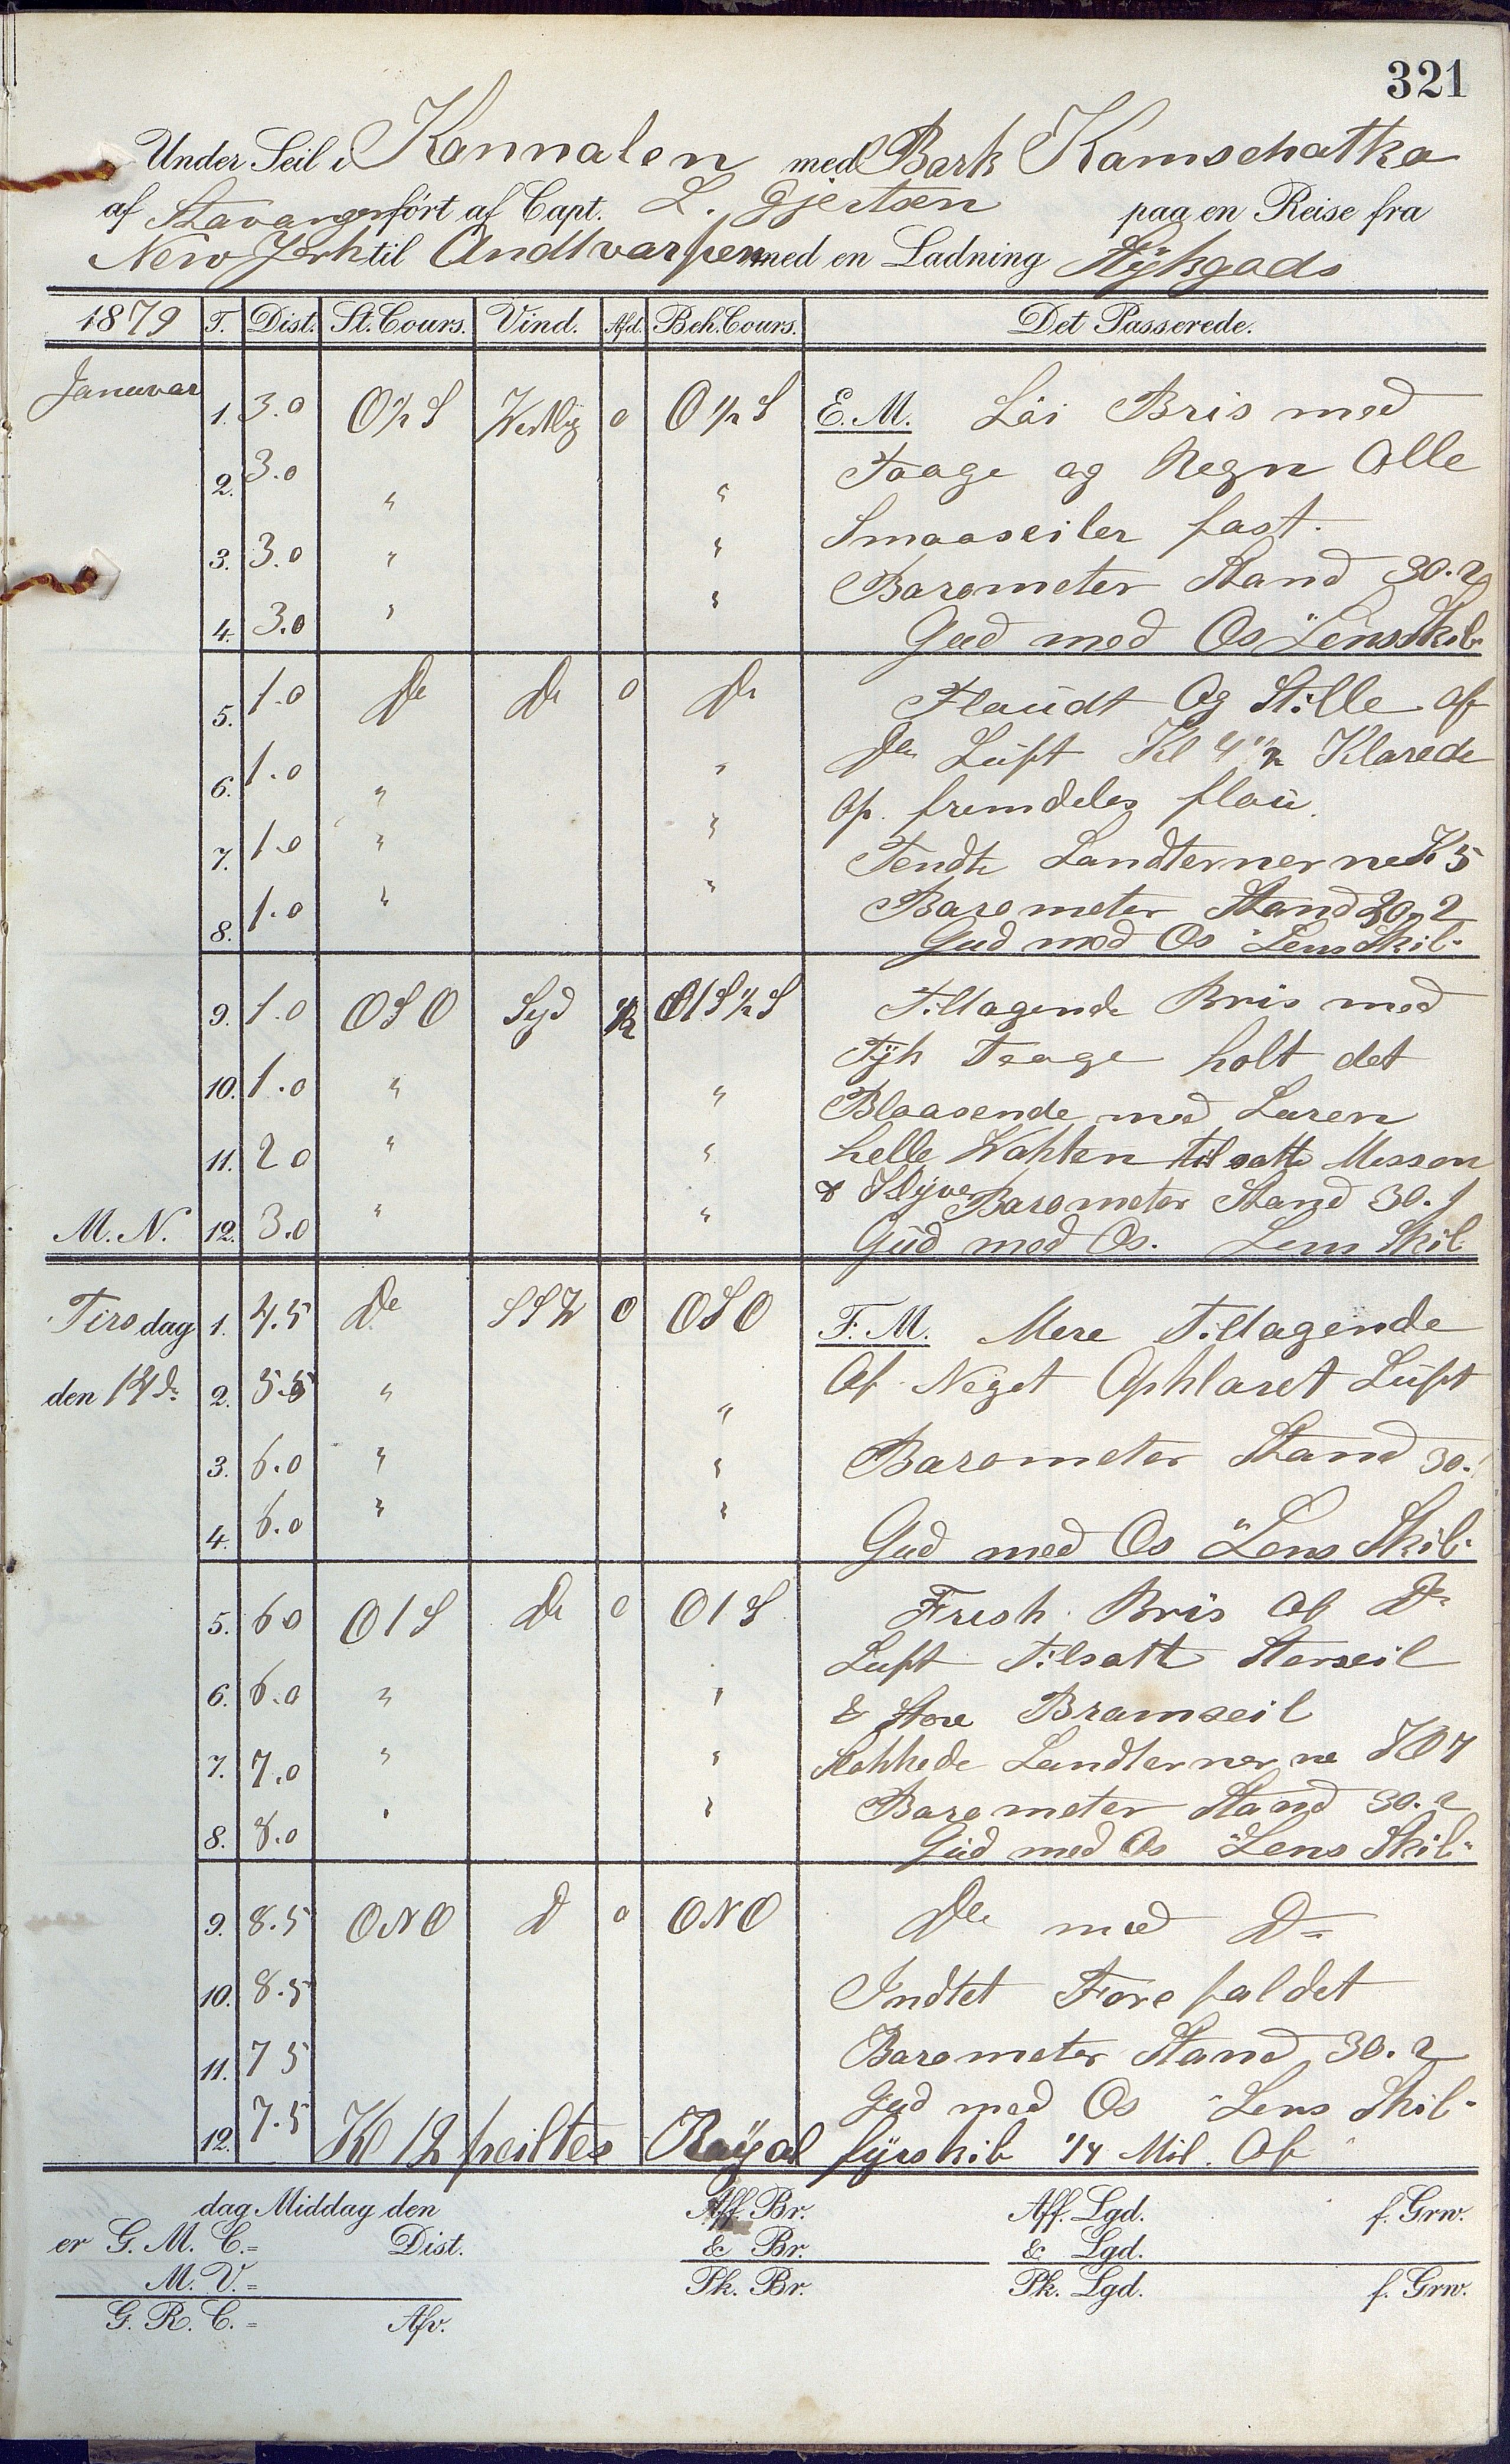 321
Under Seil i Kannalen med Bark Kamschatka
af Stavanger ført af Capt. L. Gjertsen paa en Reise fra
New York til Andtvarpen med en Ladning Stykgods
1879 T. Dist. St. Cours. Vind. Afd. Beh. Cours. Det Passerede.
Januvar 1. 3.0 O 1/2 S Vestlig 0 O 1/2 S E. M. Låi Bris med
2. 3.0 " " Taage og Regn Alle
3. 3.0 " " Smaaseiler fast.
4. 3.0 " " Barometer Stand 30.2
Gud med Os "Lens Skib"
5. 1.0 Do Do 0 Do Flaudt Og Stille af
6. 1.0 " " Do Luft Kl 4 1/2 Klarede
op. fremdeles flau.
7. 1.0 " " Tendte Landternerne Kl 5
8. 1.0 " " Barometer Stand 30.2
Gud med Os "Lens Skib"
9. 1.0 O S O Syd 1/2 O 1 S 1/2 S Tiltagende Bris med
10. 1.0 " " Tyk Taage holt det
Blaasende med Luren
11. 2 0 " " helle Vakten tilsatte Messan
12. 3.0 " " & Klyver Barometer Stand 30.1
M. N. Gud med Os. Lens Skib
Tirsdag 1. 4.5 Do S S V 0 O S O F. M. Mere Tiltagende
den 14 de 2. 5.5 " " Af Noget Opklaret Luft
3. 6.0 " " Barometer Stand 30.1
4. 6.0 " " Gud med Os "Lens Skib"
5. 6 0 O 1 S Do 0 O 1 S Fresk Bris Af Do
Luft Tilsatte Storseil
6. 6.0 " " & Store Bramseil
7. 7.0 " " Slokkede Landternerne Kl 7
8. 8.0 " " Barometer Stand 30.2
Gud med Os "Lens Skib"
9. 8.5 O N O D 0 O N O Do med Do
10. 8.5 Indtet Forefaldet
11. 7 5 Barometer Stand 30.2
Gud med Os "Lens Skib"
12. 7.5 Kl 12 peiltes Royal fyrskib 1/4 Mil. Af
dag Middag den Aff. Br. Aff. Lgd. f. Grw.
er G. M. C.= Dist. & Br. & Lgd.
M. V.= Pk. Br. Pk. Lgd. f. Grw.
G. R. C.= Afv.